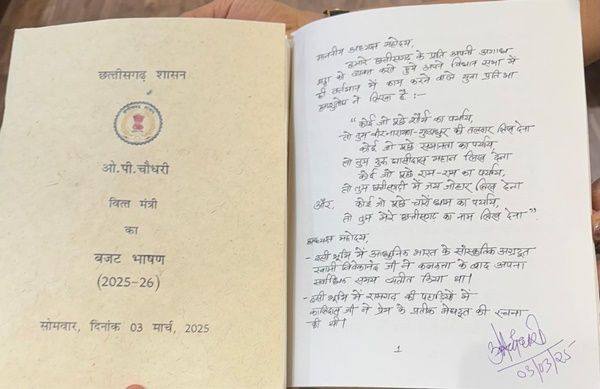 छत्तीसगढ़ शासन
ओ.पी.चौधरी
वित्त मंत्री
का
बजट भाषण
(2025-26)
सोमवार, दिनांक 03 मार्च, 2025
माननीय अध्यक्ष महोदय,
हमारे छत्तीसगढ़ के प्रति अपनी अगाध
श्रद्धा को व्यक्त करते हुये अपने विधान सभा में
ही वर्तमान में काम करने वाले युवा प्रतिभा
ने लिखा है :-
"कोई जो पूछे शौर्य का पर्याय,
तो तुम वीरनारायण-गुण्डाधुर की तलवार लिख देना
कोई जो पूछे समानता का पर्याय,
तो तुम गुरु घासीदास महान लिख देना
कोई जो पूछे राम-राम का पर्याय,
तो तुम छत्तीसगढ़ी में जय जोहार लिख देना
और, कोई जो पूछे चारों धाम का पर्याय,
तो तुम मेरे छत्तीसगढ़ का नाम लिख देना".
अध्यक्ष महोदय,
- इसी भूमि में आधुनिक भारत के सांस्कृतिक अग्रदूत
स्वामी विवेकानंद जी ने कलकत्ता के बाद अपना
सर्वाधिक समय व्यतीत किया था।
- इसी भूमि में रामगढ़ की पहाड़ियों में
कालिदास जी ने प्रेम के प्रतीक मेघदूत की रचना
की थी।
1
03/03/25